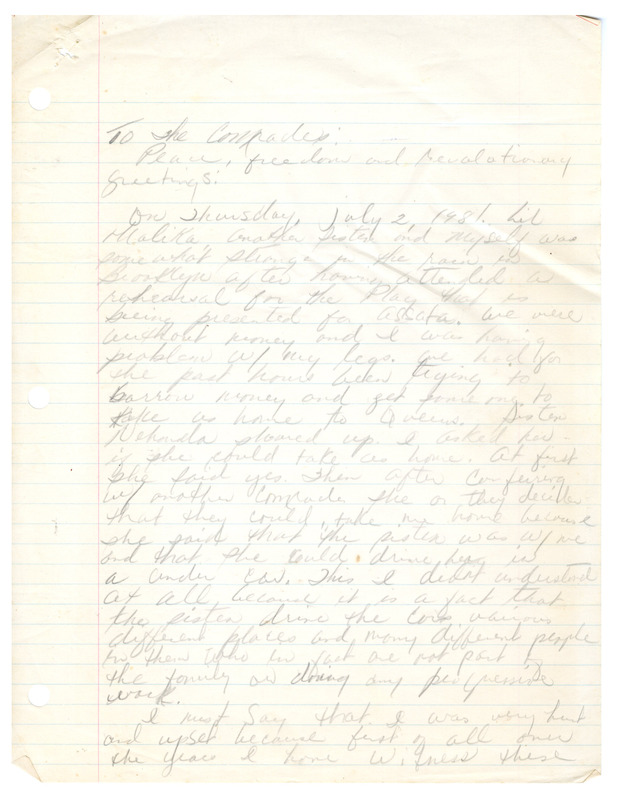 To the Comrades:
Peace, freedom and Revolutionary
greetings:
On Thursday, July 2, 1981. Lil
Malika, another sister and myself was
somewhat strange in the rain in
Brooklyn after having attended a
rehearsal for the Play that is
being presented for Assata. We were
without money and I was having
problem w/ my legs. We had for
the past hours been trying to
barrow money and get someone to
take us home to Queens. Sister
Nehanda showed up. I asked her
if she could take us home. At first
she said yes. Then after confering
w/ another comrade she or they decided
that they could take me home because
she said that the sister was w/ me
and that she could drive her in
a under car. This I didn't understand
at all, because it is a fact that
the sister drive the cars various
different places and many different people
in them who in fact are not part of
the family or doing any progressive
work.
I must say that I was very hurt
and upset because first of all over
the years I have witness these